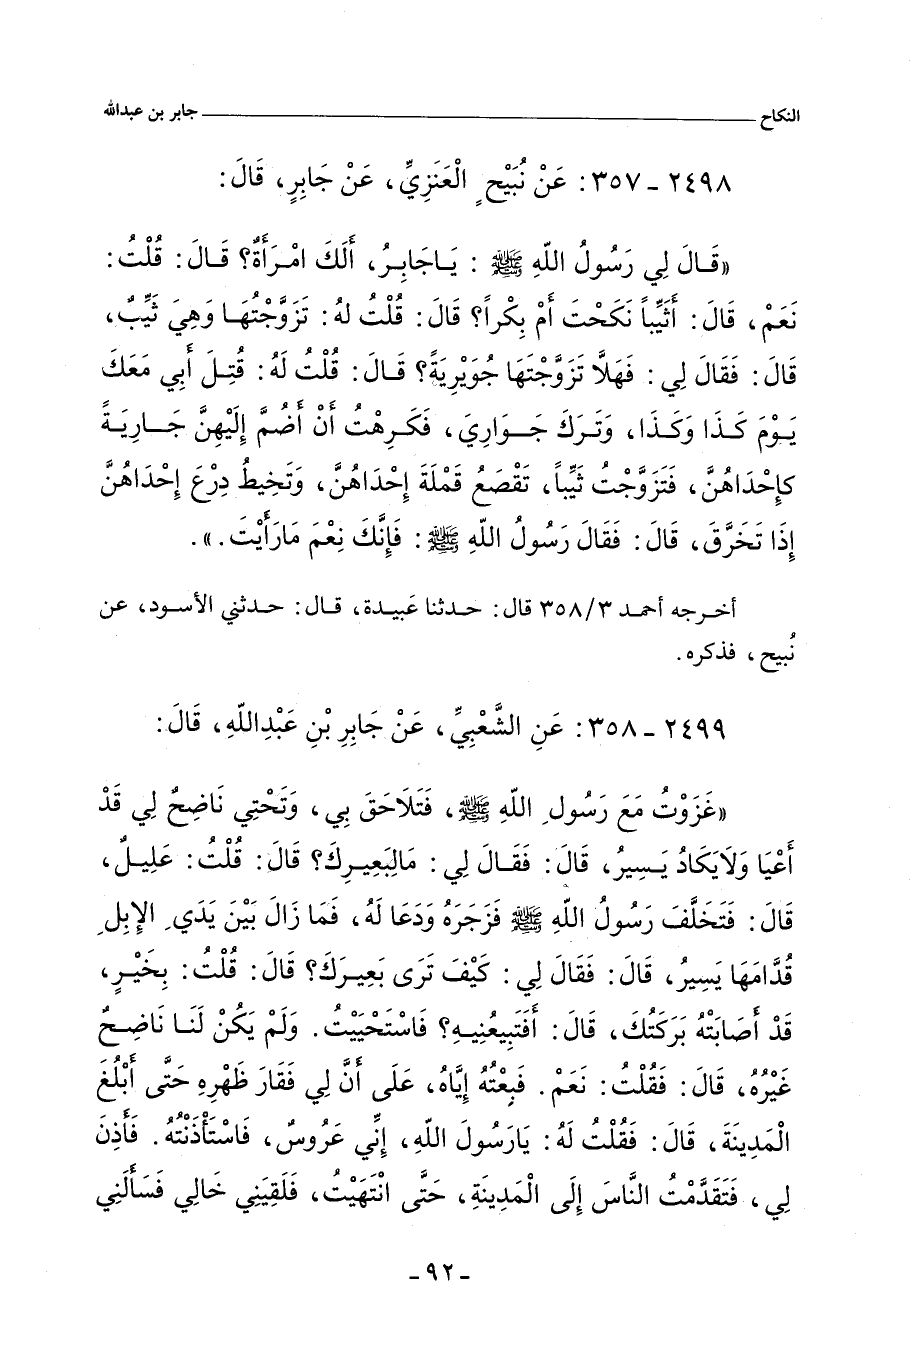 النكاح ــــــــــ جابر بن عبدالله
٢٤٩٨ - ٣٥٧: عَنْ نُبَيْحٍ الْعَنَزِيِّ، عَنْ جَابِرٍ، قَالَ:
«قَالَ لِي رَسُولُ اللّهِ ﷺ : يَاجَابِرُ، أَلَكَ امْرَأَةٌ؟ قَالَ: قُلْتُ:
نَعَمْ، قَالَ: أَثَيِّباً نَكَحْتَ أَمْ بِكْراً؟ قَالَ: قُلْتُ لهُ: تَزَوَّجْتُهَا وَهِيَ ثَيِّبٌ،
قَالَ: فَقَالَ لِي: فَهَلاَّ تَزَوَّجْتَهَا جُوَيْرِيَةً؟ قَالَ: قُلْتُ لَهُ: قُتِلَ أَبِي مَعَكَ
يَوْمَ كَذَا وَكَذَا، وَتَرَكَ جَوَارِيَ، فَكَرِهْتُ أَنْ أَضُمَّ إِلَيْهِنَّ جَارِيَةً
كإِحْدَاهُنَّ، فَتَزَوَّجْتُ ثَيِّباً، تَقْصَعُ قَمْلَةَ إِحْدَاهُنَّ، وَتَخِيطُ دِرْعَ إِحْدَاهُنَّ
إِذَا تَخَرَّقَ، قَالَ: فَقَالَ رَسُولُ اللّهِ ﷺ: فَإِنَّكَ نِعْمَ مَارَأَيْتَ.».
أخرجه أحمد ٣٥٨/٣ قال: حدثنا عَبيدة، قال: حدثني الأسود، عن
نُبيح، فذكره.
٢٤٩٩ - ٣٥٨: عَنِ الشَّعْبِيِّ، عَنْ جَابِرِ بْنِ عَبْدِاللّهِ، قَالَ:
«غَزَوْتُ مَعَ رَسُولِ اللّهِ ﷺ، فَتَلَاحَقَ بِي، وَتَحْتِي نَاضِحٌ لِي قَدْ
أَعْيَا وَلَايَكَادُ يَسِيرُ، قَالَ: فَقَالَ لِي: مَالِبَعِيرِكَ؟ قَالَ: قُلْتُ: عَلِيلٌ،
قَالَ: فَتَخَلَّفَ رَسُولُ اللّهِ ﷺ فَزَجَرَهُ وَدَعَا لَهُ، فَمَا زَالَ بَيْنَ يَدَيِ الإِبِلِ
قُدَّامَهَا يَسِيرُ، قَالَ: فَقَالَ لِي: كَيْفَ تَرَى بَعِيرَكَ؟ قَالَ: قُلْتُ: بِخَيْرٍ،
قَدْ أَصَابَتْهُ بَرَكَتُكَ، قَالَ: أَفَتَبِيعُنِيهِ؟ فَاسْتَحْيَيْتُ. وَلَمْ يَكُنْ لَنَا نَاضِحٌ
غَيْرُهُ، قَالَ: فَقُلْتُ: نَعَمْ. فَبِعْتُهُ إِيَّاهُ، عَلَى أَنَّ لِي فَقَارَ ظَهْرِهِ حَتَّى أَبْلُغَ
الْمَدِينَةَ، قَالَ: فَقُلْتُ لَهُ: يَارَسُولَ اللّهِ، إِنِّي عَرُوسٌ، فَاسْتَأْذَنْتُهُ. فَأَذِنَ
لِي، فَتَقَدَّمْتُ النَّاسَ إِلَى الْمَدِينَةِ، حَتَّى انْتَهَيْتُ، فَلَقِيَنِي خَالِي فَسَأَلَنِي
- ٩٢ -